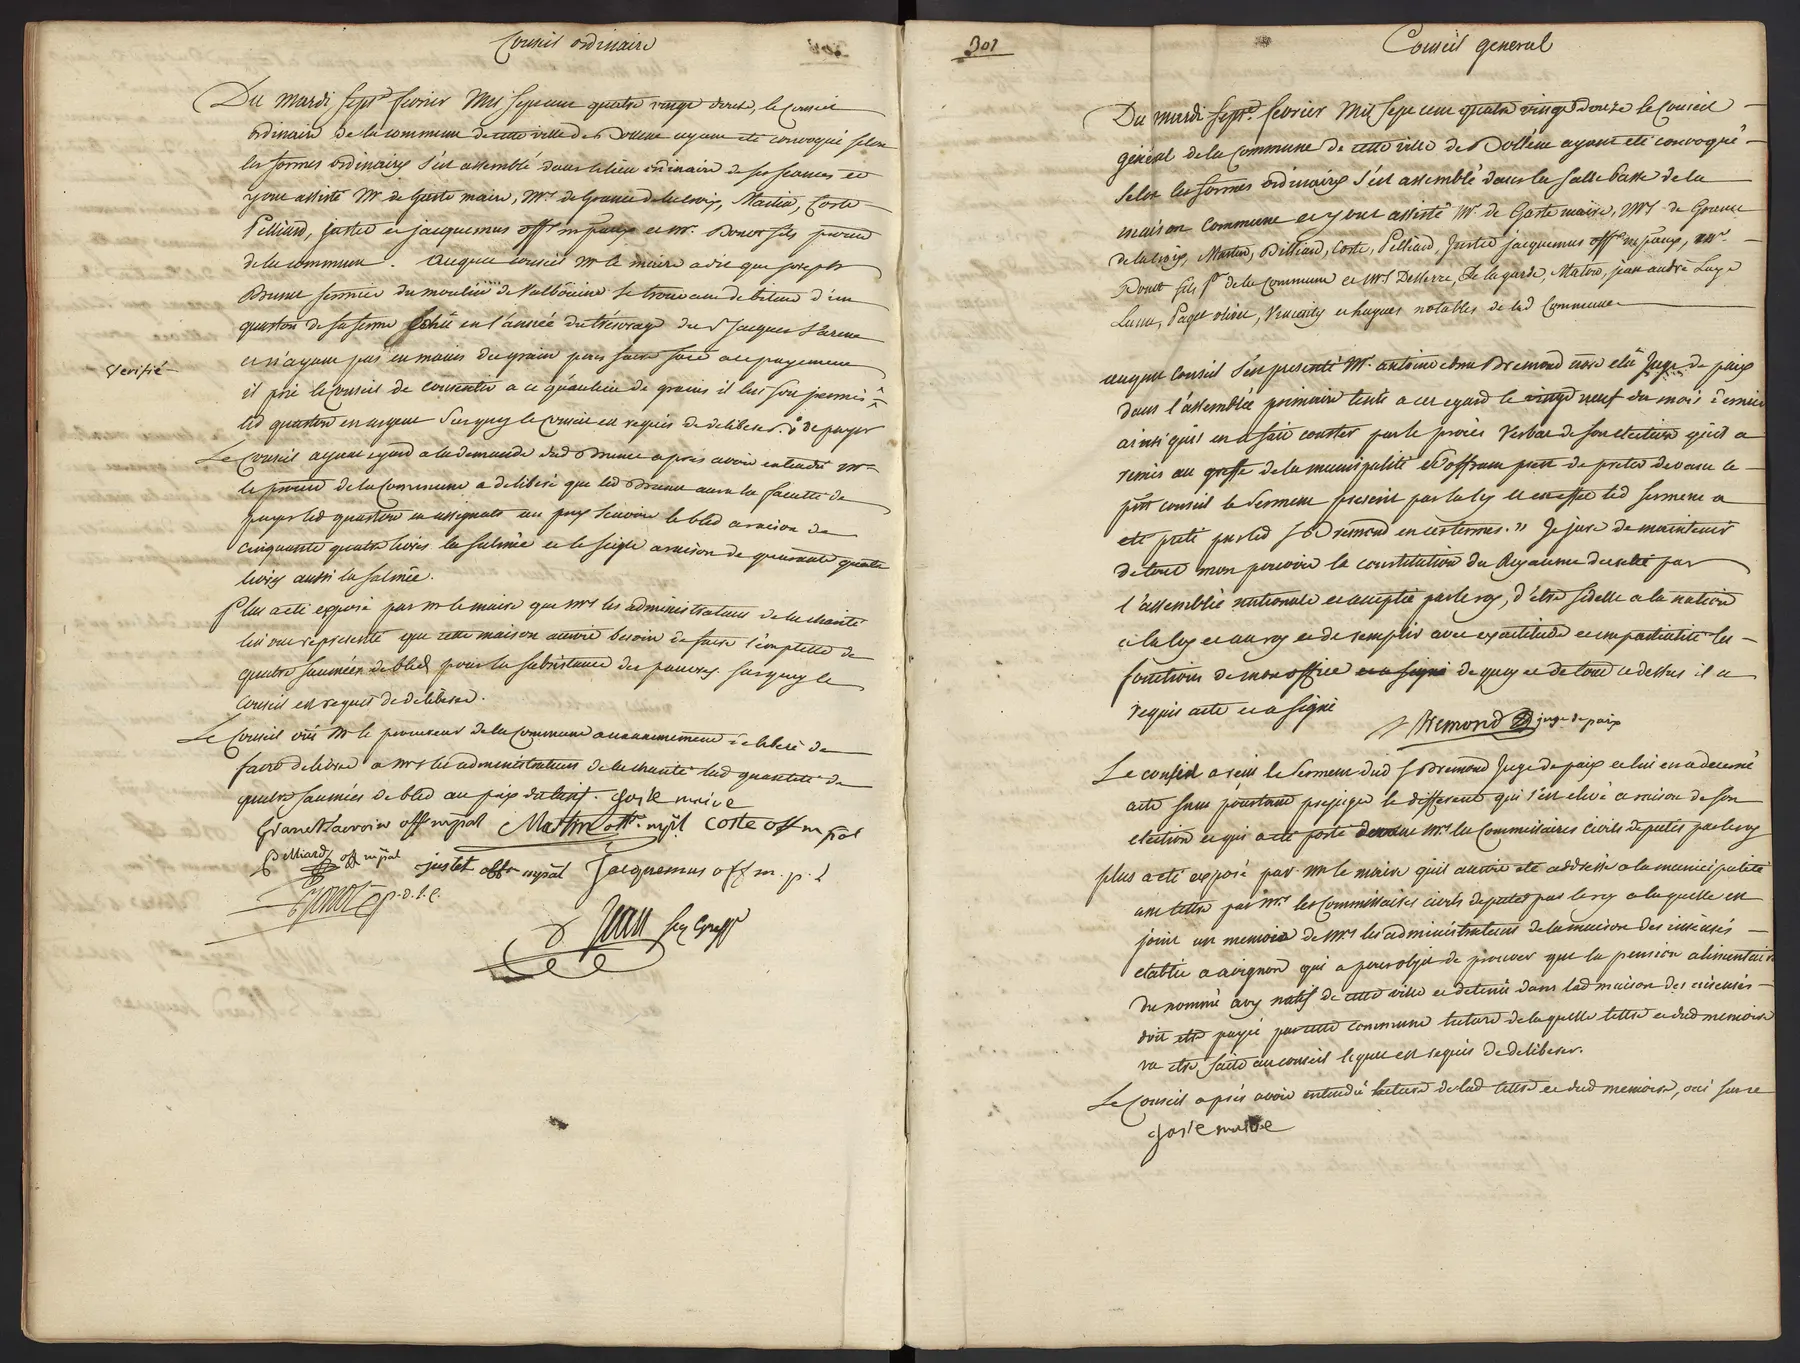 Conseil ordinaire
Du mardi sept.e fevrier Mil sept cent quatre vingt douze, le Conseil
ordinaire de la commune de cette ville de Bollene ayant eté convoqué selon
les formes ordinaires s'est assemblé dans le lieu ordinaire de ses seances et
y ont assisté Mr de Gaste maire, Mrs de Granet de la croix, Martin, Coste
Pelliard, Justet et jacquemus off.rs m.paux et Mr. Bonot fils procur
de la commune. Auquel conseil Mr le maire a dit que joseph
Brunet fermier du moulin de Valbonne se trouvant debiteur d'un
quarton de sa ferme en l'année du
et n'ayant pas en mains du grain pour faire face au payement
Verifié
il prie le Conseil de consentir a ce qu'au lieu de grains il lui soit permis
led quarton en argent sur quoy le Conseil est requis de deliberer. de payer
Le Conseil ayant egard a la demande dud Brunet apres avoir entendu Mr
le procur de la Commune a deliberé que led Brunet aura la faculté de
payer led quarton en assignats au prix scavoir le bled a raison de
cinquante quatre livres la salmée et le seigle a raison de quarante quatre
livres aussi la salmée.
Plus a eté exposé par Mr le maire que Mrs les administrateurs de la charité
lui ont representé que cette maison auroit besoin de faire l'emplette de
quatre saumées de bled pour la subsistance des pauvres. sur quoy le
Conseil est requis de deliberer.
Le Conseil oui Mr le procureur de la Commune a unanimement deliberé de
faire delivrer a Mrs les administrateurs de la charité lad quantité de
quatre saumées de bled au prix Gaste maire
Granet Lacroix off mpal Martin off. mpl Coste off mpal
Pelliard off mpal justet off mpal Jacquemus off m.p.l
Bonot p.d.l.C.
Jean Sec Greff
301
Conseil general
Du mardi sept.e fevrier Mil sept cent quatre vingt douze le Conseil
général de la Commune de cette ville de Bollène ayant eté convoqué
selon les formes ordinaires s'est assemblé dans la salle basse de la
maison Commune et y ont assisté Mr. de Gaste maire, Mrs de Granet
de la croix, Martin, Billiard, Coste, Pelliard, Justet jacquemus off.rs m.paux, Mr.
Bonot fils pr de la Commune et Mrs de la garde, Maton, jean andré Luge
Paquet olivier, Vincenty et hugues notables de lad Commune
auquel Conseil s'est presenté Mr. antoine Bremond elû Juge de paix
dans l'assemblée primaire tenue a cet egard le vingt neuf du mois dernier
ainsi qu'il en a fait conster par le procès verbal de son election qu'il a
remis au greffe de la municipalité et s'offrant prest de preter devant le
pnt conseil le serment prescrit par la loy et en effet led serment a
eté preté par led Sr Bremond en ces termes. " Je jure de maintenir
de tout mon pouvoir la constitution du Royaume decreté par
l'assemblée nationale et accepté par le roy, d'etre fidelle a la nation
a la loy et au roy et de remplir avec exactitude et impartialité les
fonctions de mon office et a signé de quoy et de tout ce dessus il a
requis acte et a signé
Bremond juge de paix
Le conseil a reçu le serment dud Sr Bremond Juge de paix et lui en a decerné
acte sans pourtant prejuger le different qui s'est elevé a raison de son
election et qui a eté porté devant Mrs les Commissaires civils deputés par le roy
plus a eté exposé par Mr le maire qu'il auroit eté addressé a la municipalité
une lettre par Mrs les Commissaires civils deputés par le roy a laquelle est
joint un memoire de Mrs les administrateurs de la maison des insensés
etablie a avignon qui a pour objet de prouver que la pension alimentaire
du nommé avy natif de cette ville et detenu dans lad maison des insensés
doit etre payée par cette commune lecture de laquelle lettre et dud memoire
va etre faite au conseil lequel est requis de deliberer.
Le Conseil après avoir entendu lecture de lad lettre et dud memoire, oui sur ce
Gaste maire